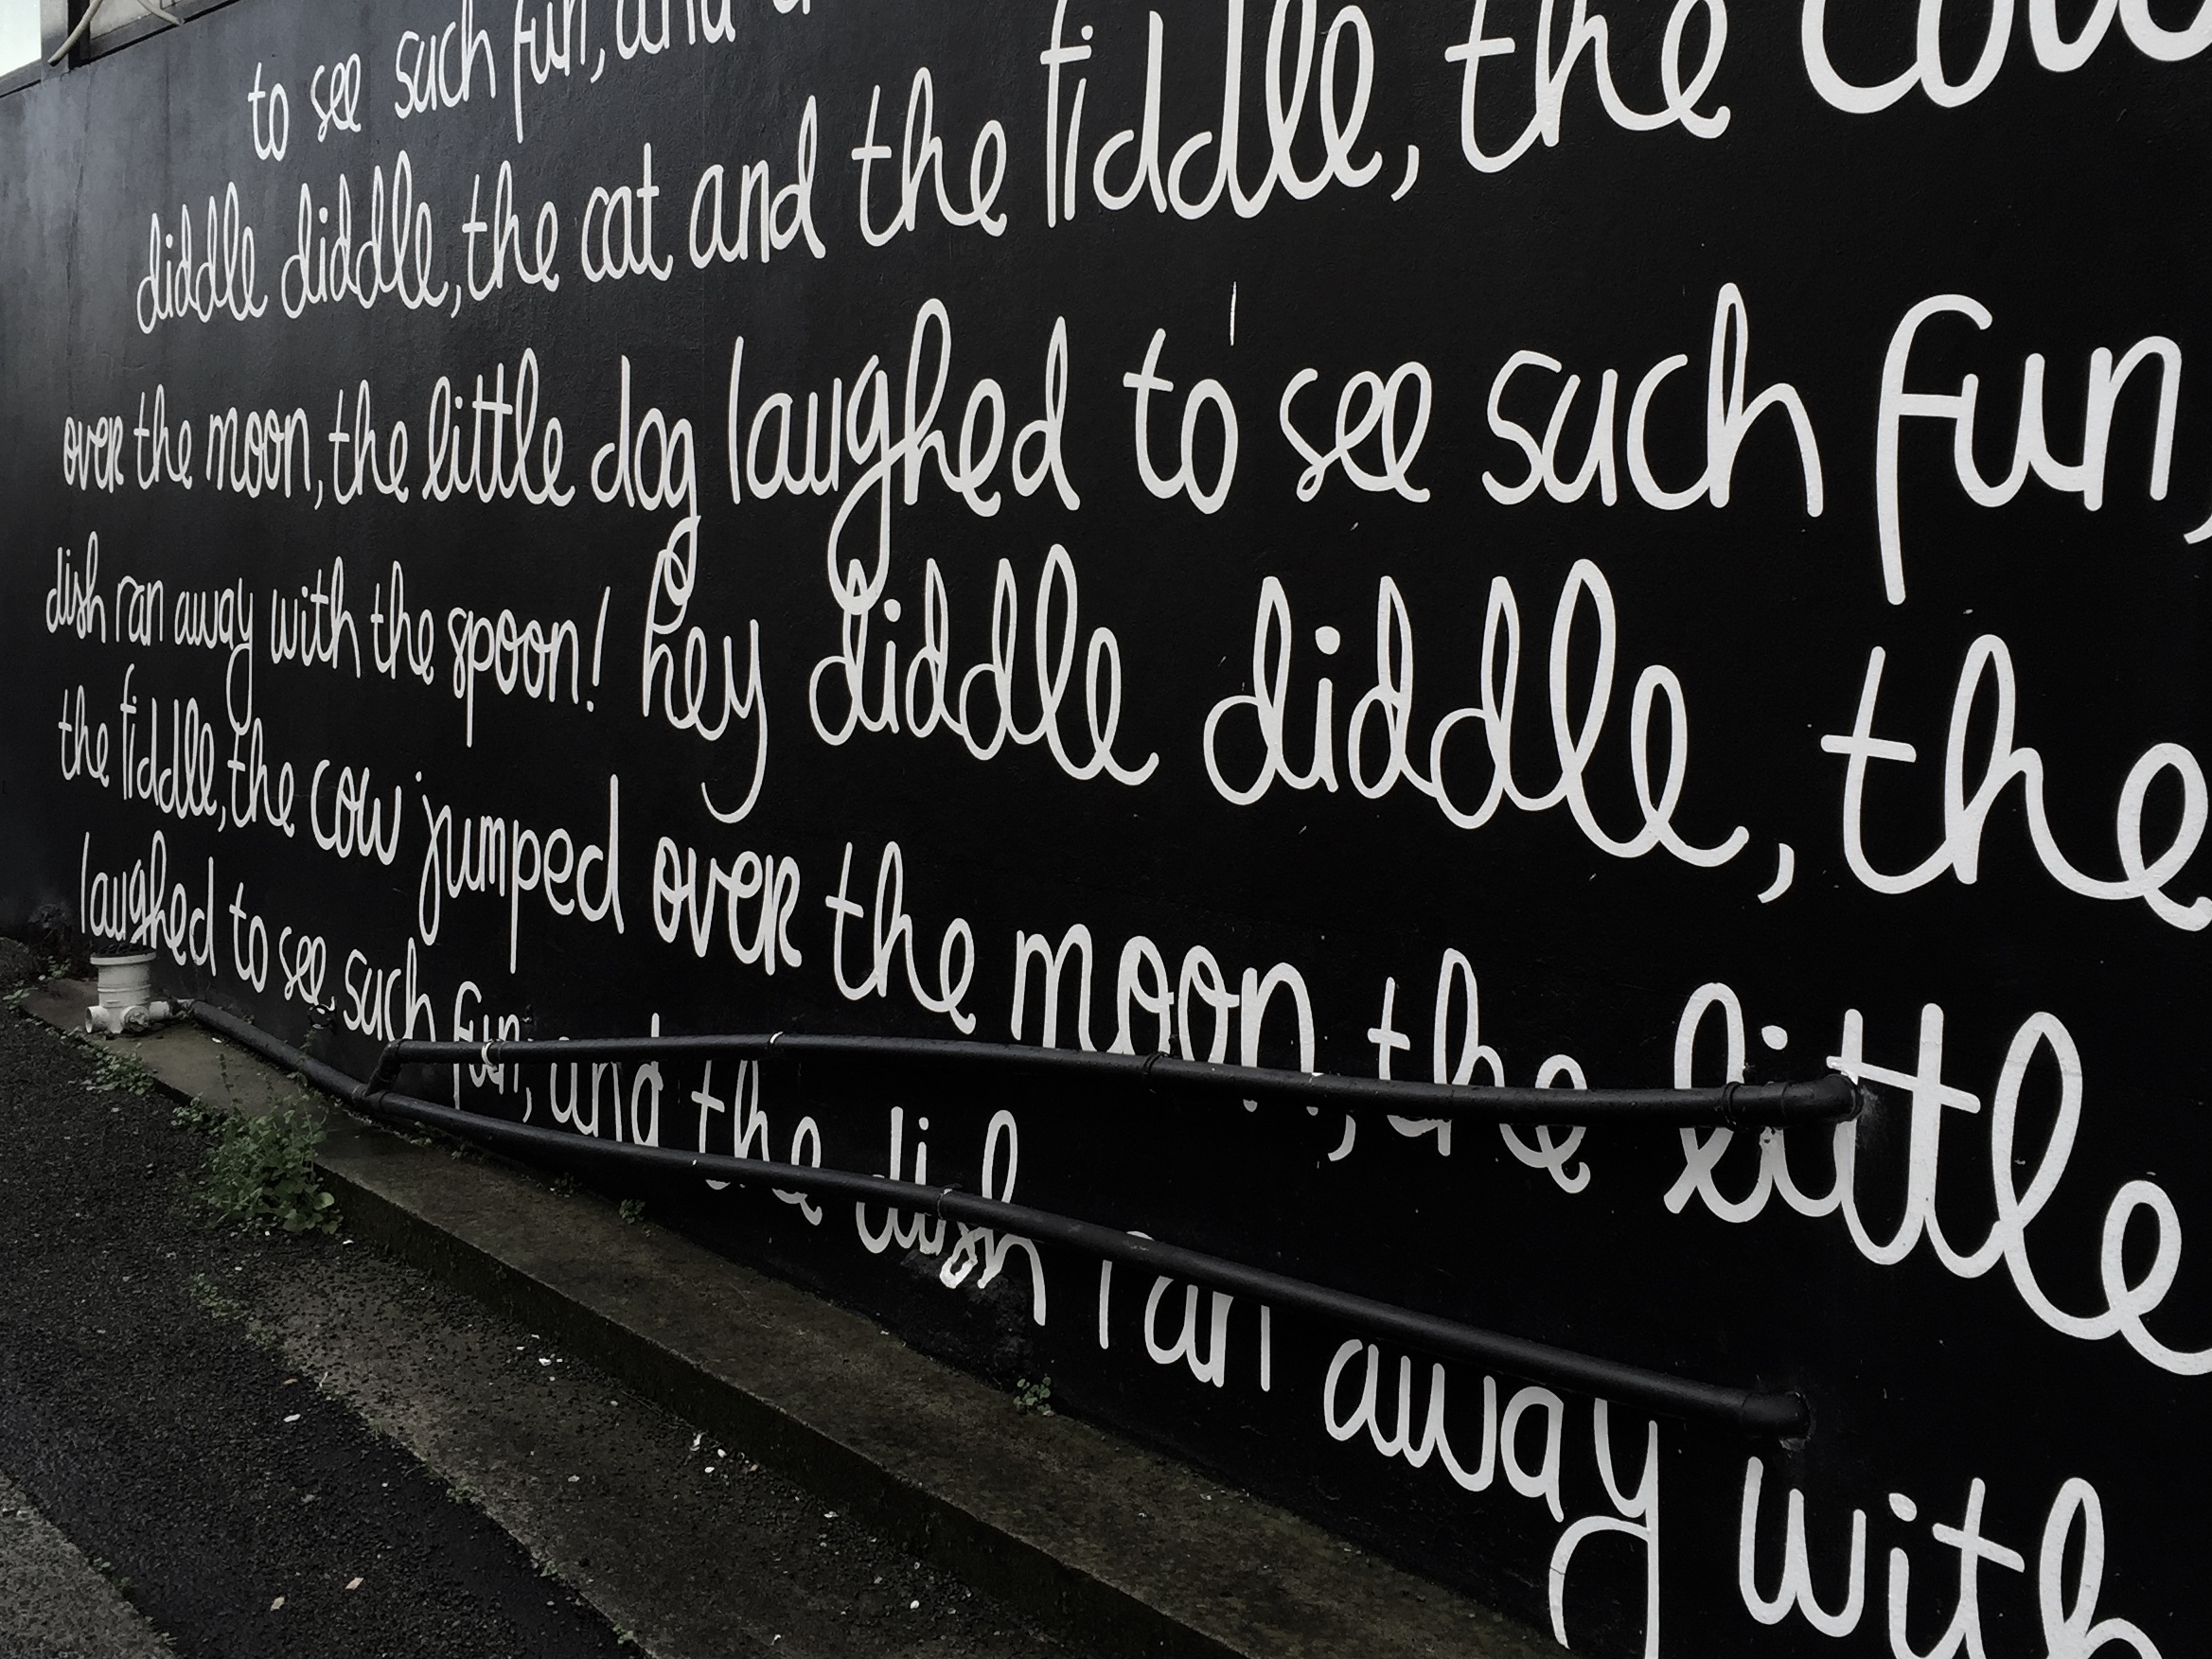 to see such fun, and
diddle diddle, the cat and the fiddle, the cow
over the moon, the little dog laughed to see such fun,
dish ran away with the spoon! hey diddle diddle, the
the fiddle, the cow jumped over the moon, the little
laughed to see such fun, and the dish ran away with